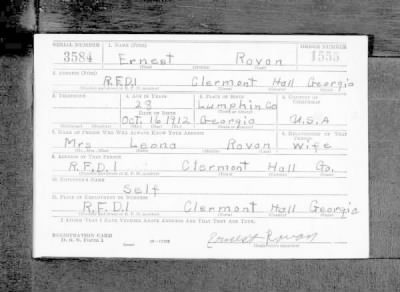 SERIAL NUMBER 1. NAME (Print) ORDER NUMBER
3584 Ernest Rovan 1555
(First) (Middle) (Last)
2. ADDRESS (Print)
R.F.D.1 Clermont Hall Georgia
3. TELEPHONE 4. AGE IN YEARS 5. PLACE OF BIRTH 6. COUNTRY OF CITIZENSHIP
28 Lumphin Co
DATE OF BIRTH
Oct. 16 1912 Georgia U.S.A
7. NAME OF PERSON WHO WILL ALWAYS KNOW YOUR ADDRESS 8. RELATIONSHIP OF THAT PERSON
Mrs Leona Rovan Wife
9. ADDRESS OF THAT PERSON
R.F.D.1 Clermont Hall Ga.
10. EMPLOYER'S NAME
Self
11. PLACE OF EMPLOYMENT OR BUSINESS
R.F.D.1 Clermont Hall Georgia
I AFFIRM THAT I HAVE VERIFIED ABOVE ANSWERS AND THAT THEY ARE TRUE.
REGISTRATION CARD
D. S. S. Form 1 Ernest Rovan